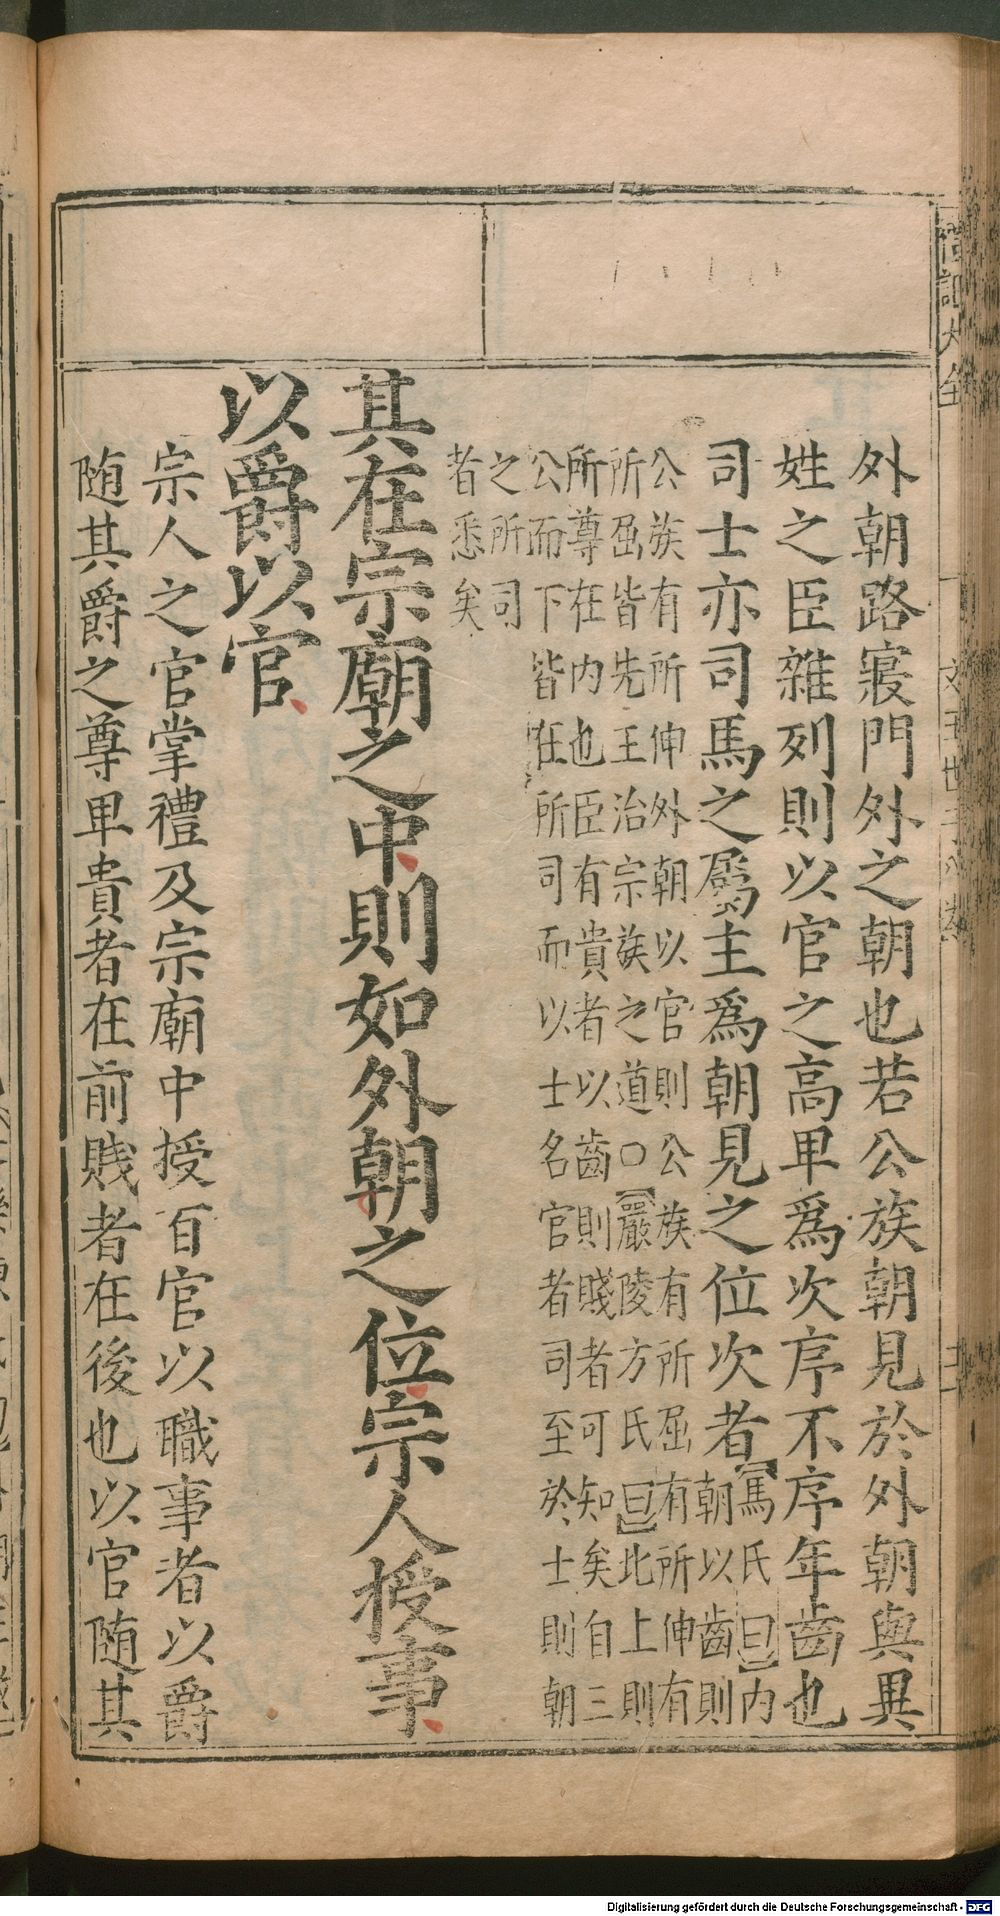 禮記大全
外朝路寢門外之朝也若公族朝見於外朝與異
姓之臣雜列則以官之高卑爲次序不序年齒也
司士亦司馬之屬主爲朝見之位次者【馬氏曰】內
朝以齒則
公族有所伸外朝以官則公族有所屈有所伸有
所屈皆先王治宗族之道○【嚴陵方氏曰】北上則
所尊在內也臣有貴者以齒則賤者可知矣自三
公而下皆在所司而以士名官者司至於士則朝
之所司
者悉矣
其在宗廟之中則如外朝之位宗人授事
以爵以官
宗人之官掌禮及宗廟中授百官以職事者以爵
随其爵之尊卑貴者在前賤者在後也以官随其
Digitalisierung gefördert durch die Deutsche Forschungsgemeinschaft - DFG